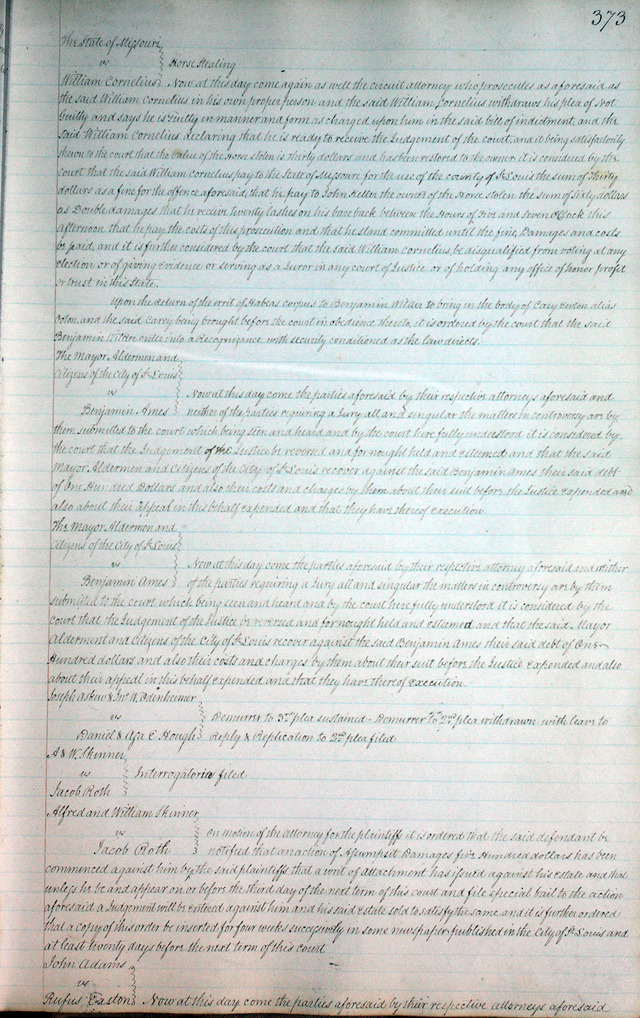 373
The State of Missouri
vs Horse Stealing
William Cornelius Now at this day come again as well the circuit attorney who prosecutes as aforesaid as
the said William Cornelius in his own proper person and the said William Cornelius withdraws his plea of Not
Guilty and says he is Guilty in manner and form as charged upon him in the said bill of indictment, and the
said William Cornelius declaring that he is ready to receive the Judgement of the court, and it being satisfactorily
shewn to the court that the value of the Horse stolen is thirty dollars and has been restored to the owner it is considered by the
court that the said William Cornelius pay to the State of Missouri for the use of the county of St Louis the sum of Thirty
dollars as a fine for the offence aforesaid, that he pay to John Keller the owner of the Horse stolen the sum of Sixty dollars
as Double damages that he receive twenty lashes on his bare back between the Hours of five and Seven O'Clock this
afternoon that he pay the costs of this prosecution and that he stand committed until the fine, Damages and costs
be paid, and it is further considered by the court that the said William Cornelius be disqualified from voting at any
election or of giving Evidence or serving as a Juror in any court of Justice or of holding any office of honor profit
or trust in this State.
Upon the return of the writ of Habeas corpus to Benjamin Wilder to bring in the body of Cary alias
and the said Carey being brought before the court in obedience thereto, it is ordered by the court that the said
Benjamin Wilder enter into a Recognizance with security conditioned as the law directs.
The Mayor Aldermen and
Citizens of the City of St Louis
vs Now at this day come the parties aforesaid by their respective attorneys aforesaid and
Benjamin Ames neither of the parties requiring a Jury all and singular the matters in controversy are by
them submitted to the court which being seen and heard and by the court here fully understood it is considered by
the court that the Judgement of the Justice be reversed and for nought held and esteemed and that the said
Mayor Aldermen and Citizens of the City of St Louis recover against the said Benjamin Ames their said debt
of One Hundred Dollars and also their costs and charges by them about their suit before the Justice expended and
also about their appeal in this behalf expended and that they have thereof execution.
The Mayor Aldermen and
Citizens of the City of St Louis
vs Now at this day come the parties aforesaid by their respective attorney aforesaid and neither
Benjamin Ames of the parties requiring a Jury all and singular the matters in controversy are by them
submitted to the court which being seen and heard and by the court here fully understood it is considered by the
court that the Judgement of the Justice be reversed and for nought held and esteemed and that the said Mayor
Alderment and Citizens of the City of St Louis recover against the said Benjamin Ames their said debt of One
Hundred dollars and also their costs and charges by them about their suit before the Justice Expended and also
about their appeal in this behalf expended and that they have thereof execution
Joseph Askew & Jno W. Edenheimer
vs Demurrer to 3rd plea sustained - Demurrer to 2nd plea withdrawn with leave to
Daniel & Asa E Hough Reply & Replication to 2nd plea filed
A & W Skinner
vs Interrogatories filed
Jacob Roth
Alfred and William Skinner
vs On motion of the attorney for the plaintiffs it is ordered that the said defendant be
Jacob Roth notified that an action of Assumpsit Damages five Hundred dollars has been
commenced against him by the said plaintiffs that a writ of attachment has issued against his Estate and that
unless he be and appear on or before the third day of the next term of this court and file special bail to the action
aforesaid a Judgement will be entered against him and his said Estate sold to satisfy the same and it is further ordered
that a copy of this order be inserted for four weeks successively in some newspaper published in the City of St Louis and
at least twenty days before the next term of this court
John Adams
vs
Rufus Easton Now at this day come the parties aforesaid by their respective attorneys aforesaid